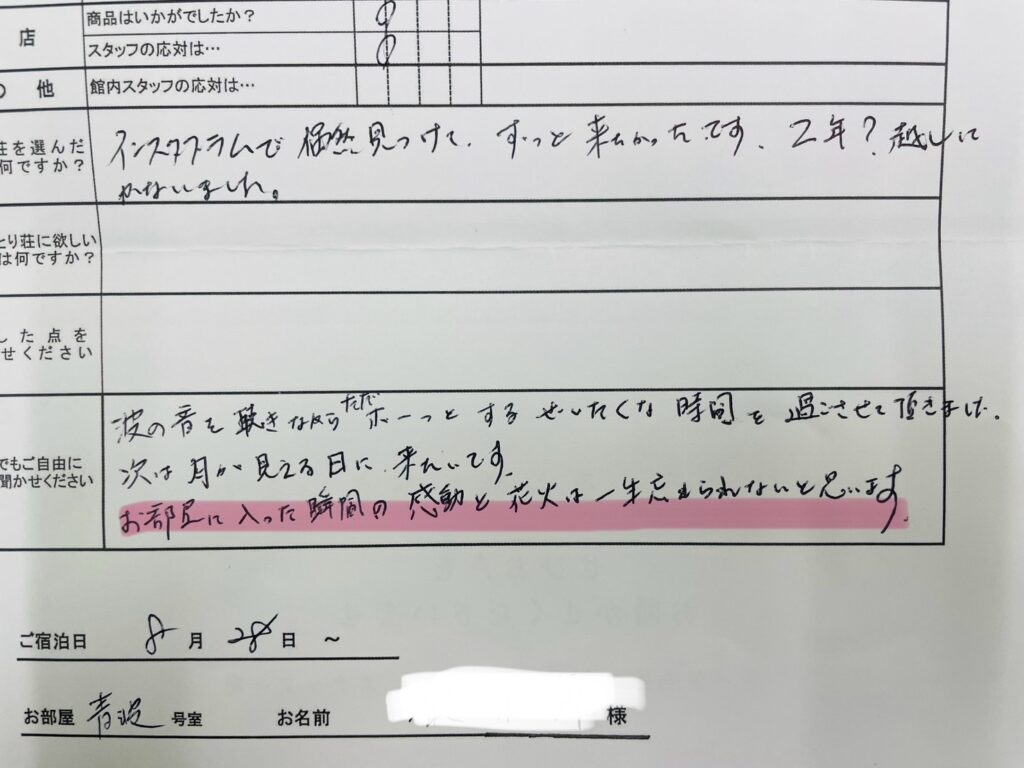 店
商品はいかがでしたか？
スタッフの応対は…
の 他
館内スタッフの応対は…
荘を選んだ
何ですか？
インスタグラムで偶然見つけて、ずっと来たかったです、2年？越しに
かないました。
とり荘に欲しい
は何ですか？
した点を
せください
でもご自由に
聞かせください
波の音を聴きながらただボーっとするぜいたくな時間を過ごさせて頂きました。
次は月が見える日に来たいです。
お部屋に入った瞬間の感動と花火は一生忘れられないと思います。
ご宿泊日 8月 28日 ～
お部屋 青波 号室 お名前 様